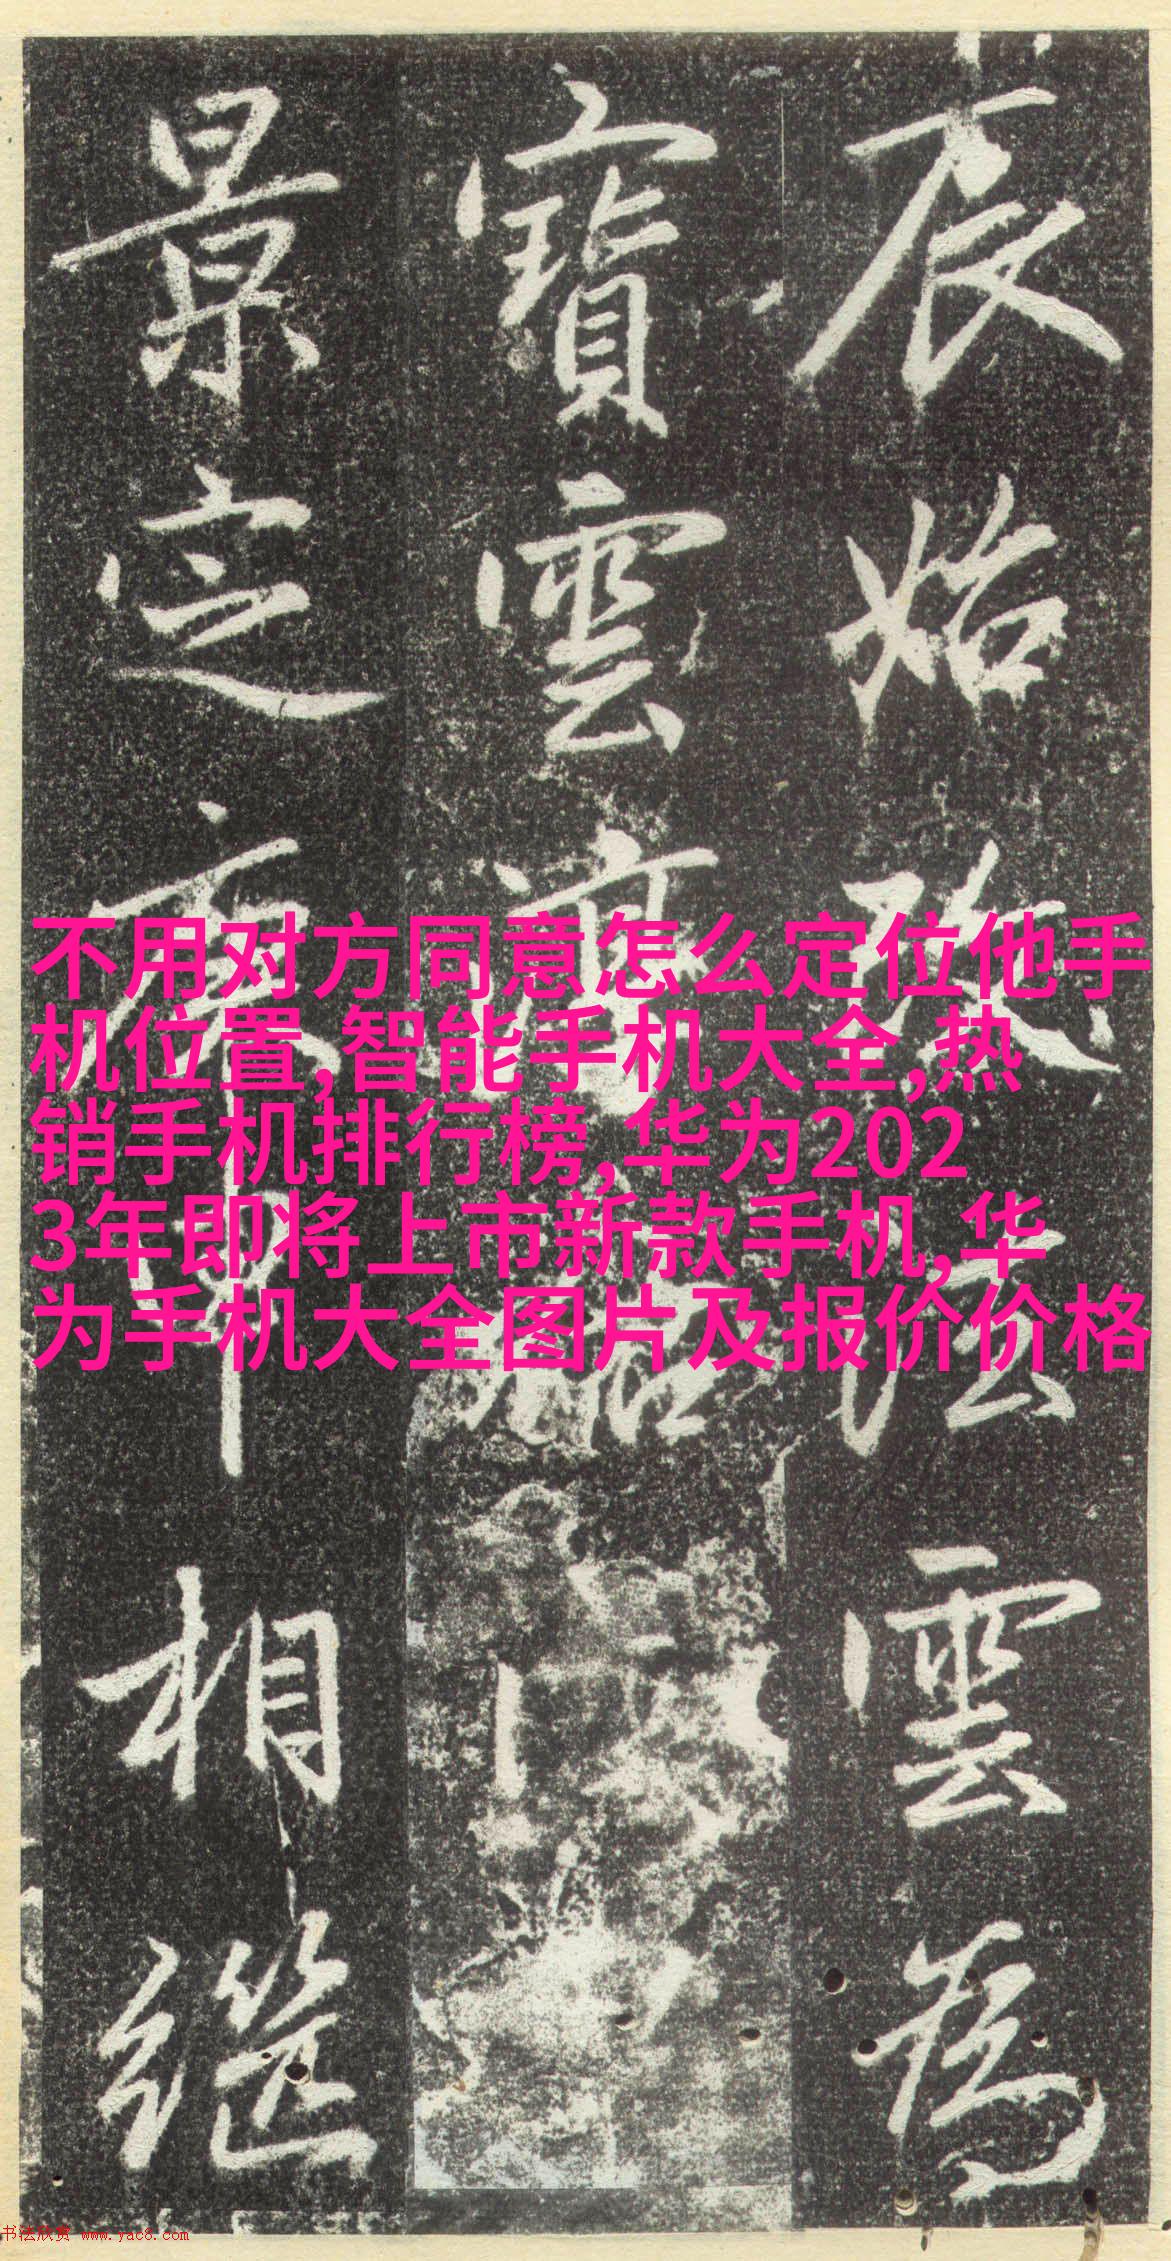 辰始改法雲為
寶雲
景定庚申相繼
不用对方同意怎么定位他手
机位置,智能手机大全,热
销手机排行榜,华为202
3年即将上市新款手机,华
为手机大全图片及报价价格
书法欣赏 www.yac8.com